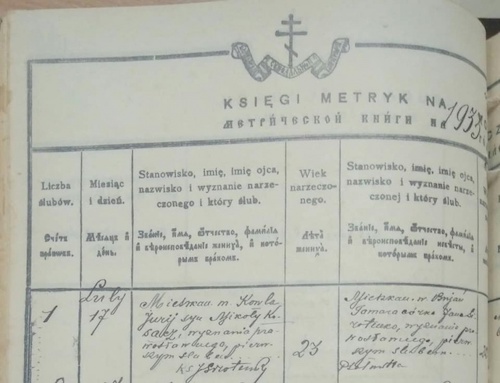 KSIĘGI METRYK NA 1933
МЕТРИЧЕСКОЙ КНИГИ НА
Liczba ślubów.
Miesiąc i dzień.
Stanowisko, imię, imię ojca, nazwisko i wyznanie narzeczonego i który ślub.
Wiek narzeczonego.
Stanowisko, imię, imię ojca, nazwisko i wyznanie narzeczonej i który ślub.
Счетъ браковъ.
Мѣсяцъ и день.
Званіе, имя, отчество, фамилія и вѣроисповѣданіе жениха, и которымъ бракомъ.
Лѣта жениха.
Званіе, имя, отчество, фамилія и вѣроисповѣданіе невѣсты, и которымъ бракомъ.
1
Luty
17
Mieszkan. m. Kowla
Jurij syn Mikoły
wyznania pra
wosławnego, pierw
szym ślubem
23
Mieszkan. w.
Tamara córka
wyznania
prawosławnego, pierw
szym ślubem